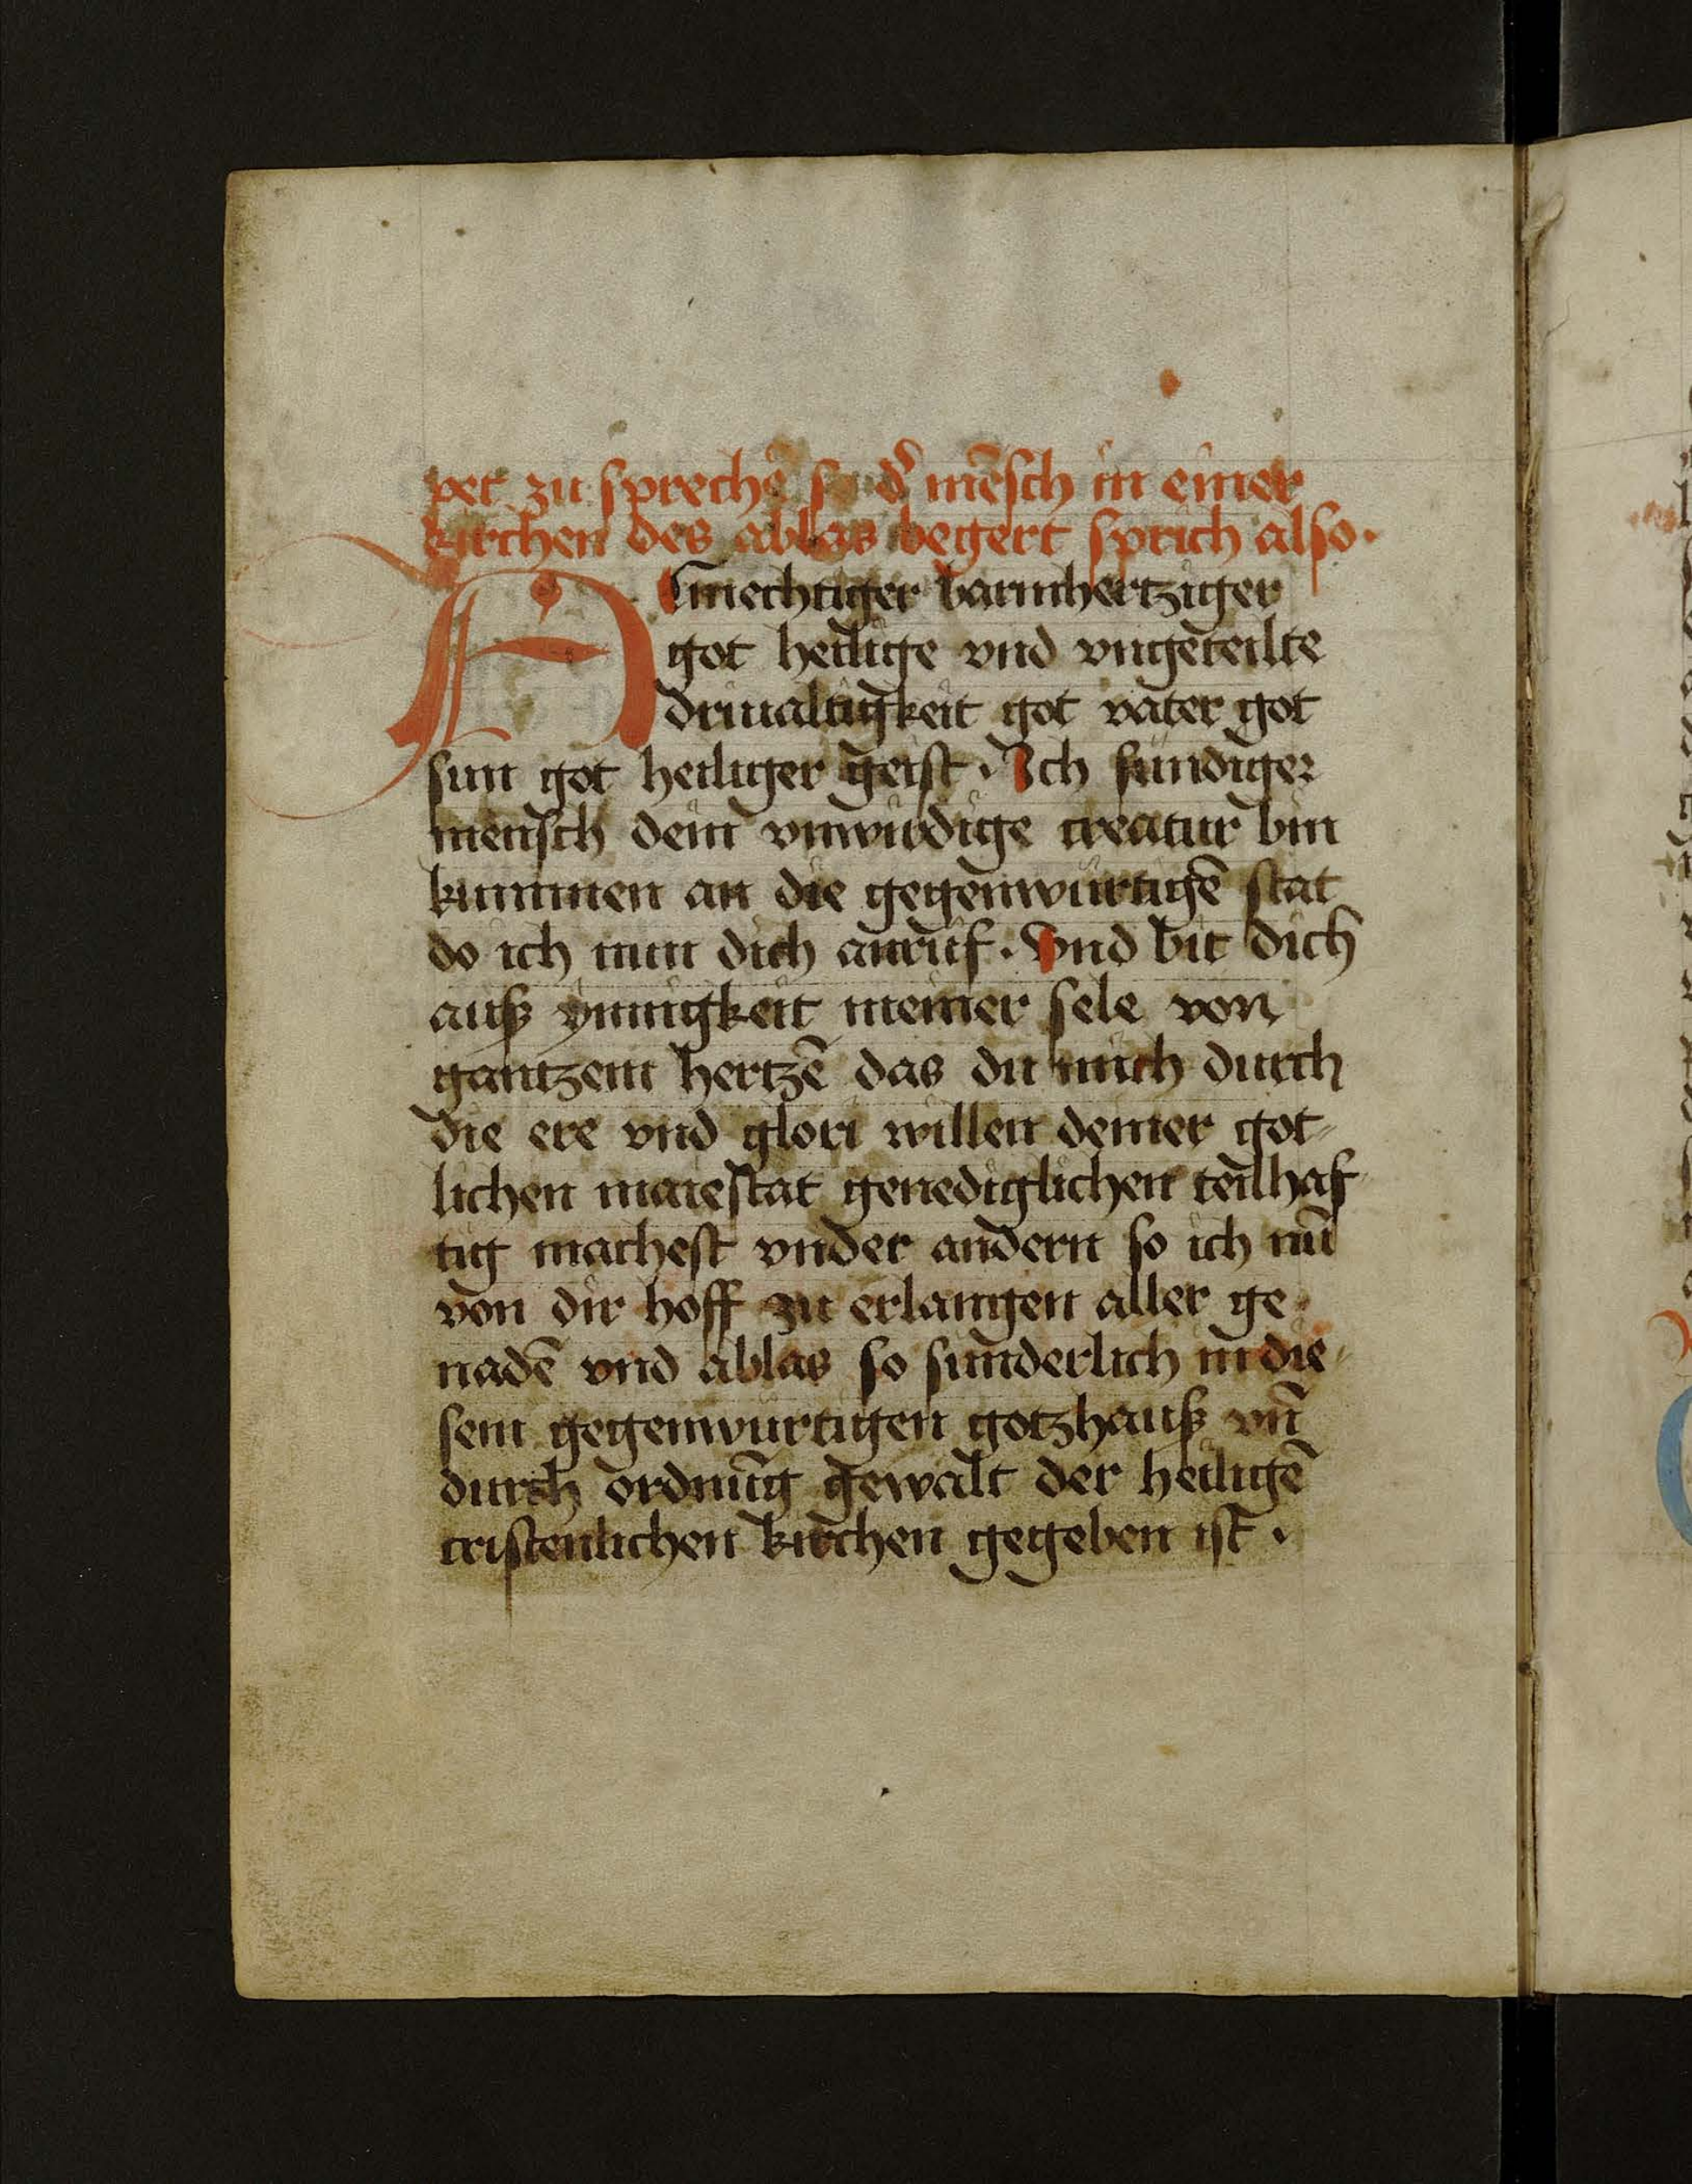 pet zu sprechē so dˀ mēsch in einer
kirchen des ablas begert sprich also·
Almechtiger barmhertziger
got heilige vnd vngeteilte
driualtigkeit got vater got
sun got heiliger geist · Ich sundiger
mensch dein vnwirdige creatur bin
kummen an die gegenwürtigē stat
do ich nun dich anruf · Vnd bit dich
auß ynnigkeit meiner sele von
gantzem hertzē das du mich durch
die ere vnd glori willen deiner got⸗
lichen maiestat genediglichen teilhaf
tig machest vnder andern so ich nū
von dir hoff zu erlangen aller ge⸗
nadē vnd ablas so sunderlich in die⸗
sem gegenwurtigen gotzhauß vn̄
durch ordnūg gewalt der heiligē
cristenlichen kirchen gegeben ist ·